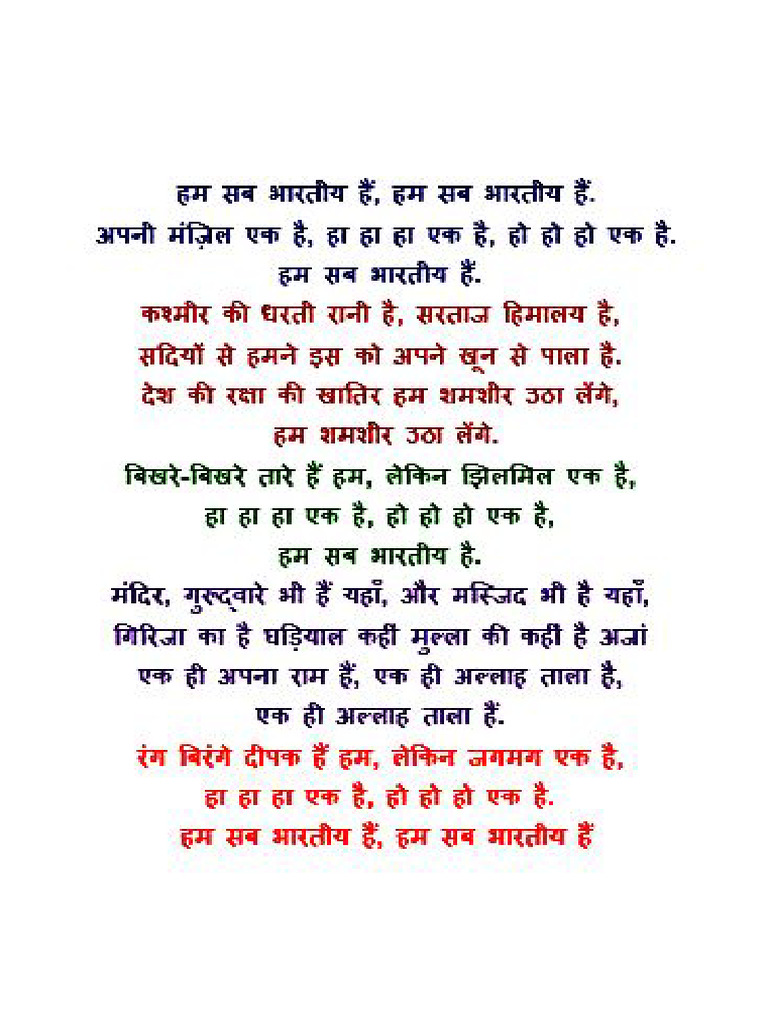 हम सब भारतीय हैं, हम सब भारतीय हैं.
अपनी मंज़िल एक है, हा हा हा एक है, हो हो हो एक है.
हम सब भारतीय हैं.
कश्मीर की धरती रानी है, सरताज हिमालय है,
सदियों से हमने इस को अपने खून से पाला है.
देश की रक्षा की खातिर हम शमशीर उठा लेंगे,
हम शमशीर उठा लेंगे.
बिखरे-बिखरे तारे हैं हम, लेकिन झिलमिल एक है,
हा हा हा एक है, हो हो हो एक है,
हम सब भारतीय है.
मंदिर, गुरुद्वारे भी हैं यहाँ, और मस्जिद भी है यहाँ,
गिरिजा का है घड़ियाल कहीं मुल्ला की कहीं है अजां
एक ही अपना राम हैं, एक ही अल्लाह ताला है,
एक ही अल्लाह ताला हैं.
रंग बिरंगे दीपक हैं हम, लेकिन जगमग एक है,
हा हा हा एक है, हो हो हो एक है.
हम सब भारतीय हैं, हम सब भारतीय हैं